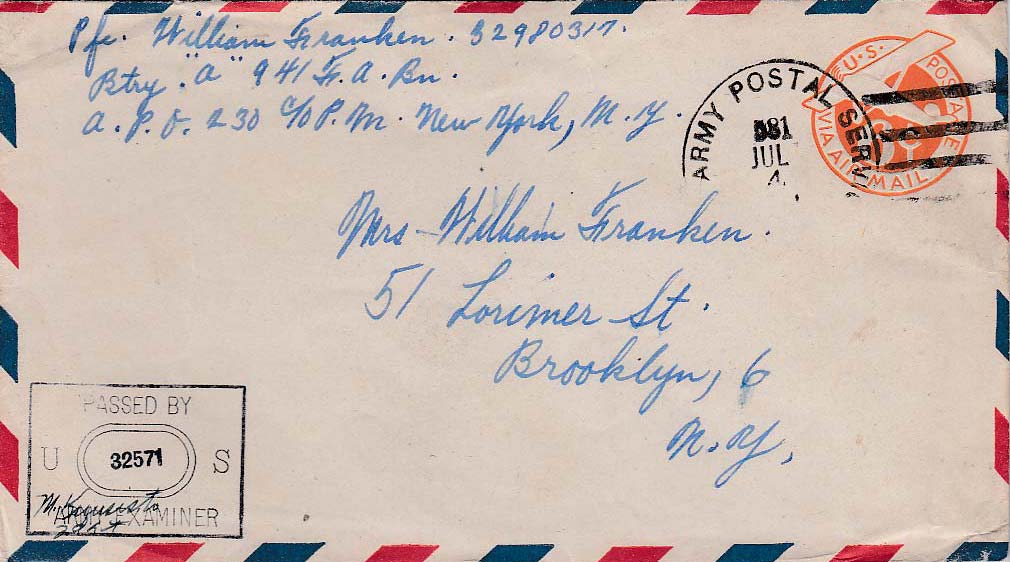 Pfc. William Franken. 32980317.
Btry. "A" 941 F.A. Bn.
A.P.O. 230 c/o P.M. New York, N.Y.
ARMY POSTAL SERVI
581
JUL
4
U.S. POSTAGE
VIA AIR MAIL
Mrs William Franken.
51 Lorimer St.
Brooklyn, 6
N.Y.
PASSED BY
U 32571 S
ARMY EXAMINER